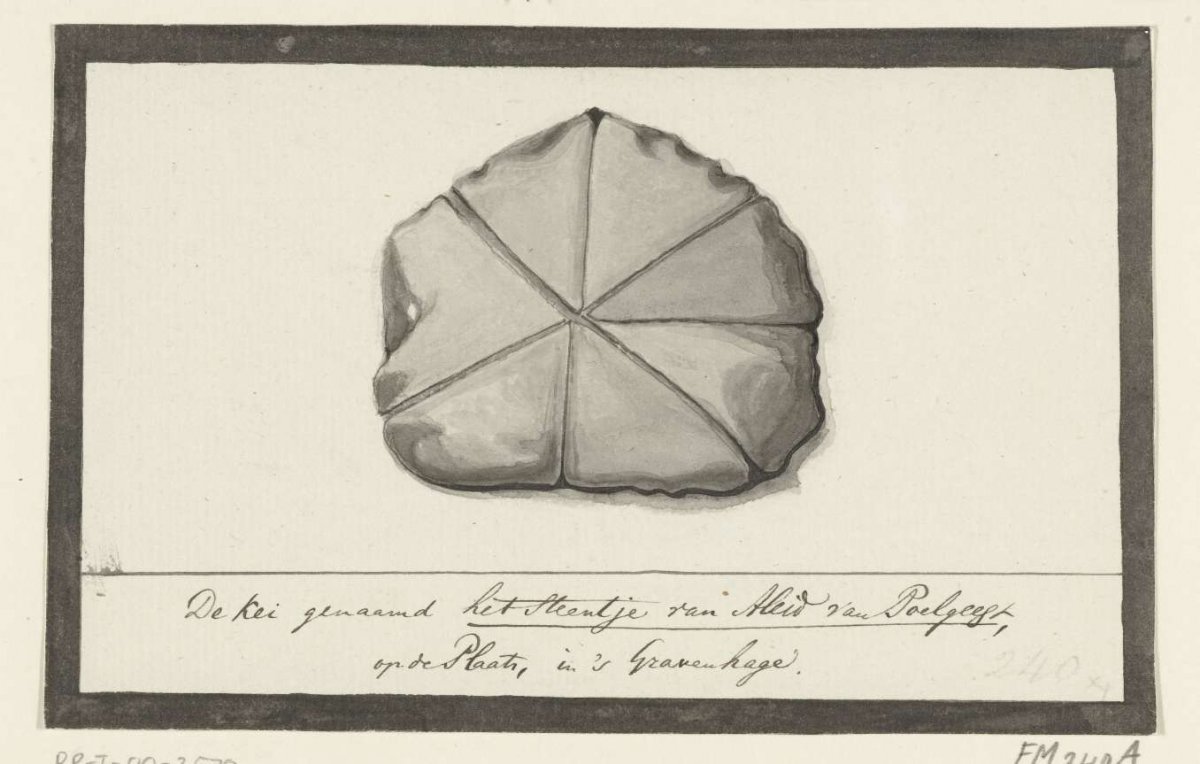 De Kei genaamd het Steentje van Aleid van Poelgeest,
op de Plaats, in 's Gravenhage.
240
FM 240 A